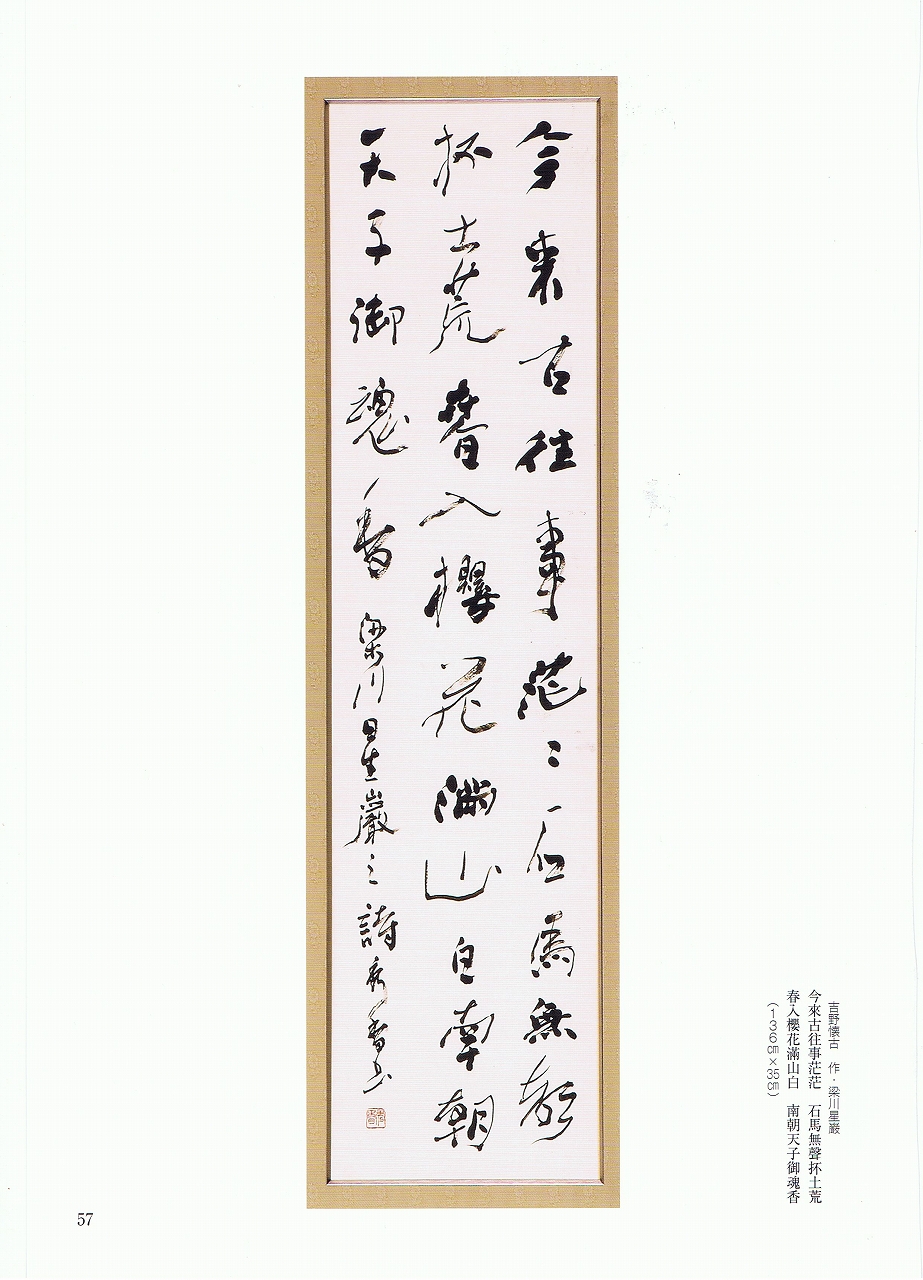 今来古往事茫〻石馬無聲
抔土荒春入櫻花滿山白南朝
天子御魂香 梁川星巖之詩 秀香書
吉野懐古 作・梁川星巖
今來古往事茫茫 石馬無聲抔土荒
春入櫻花滿山白 南朝天子御魂香
（136㎝×35㎝）
57